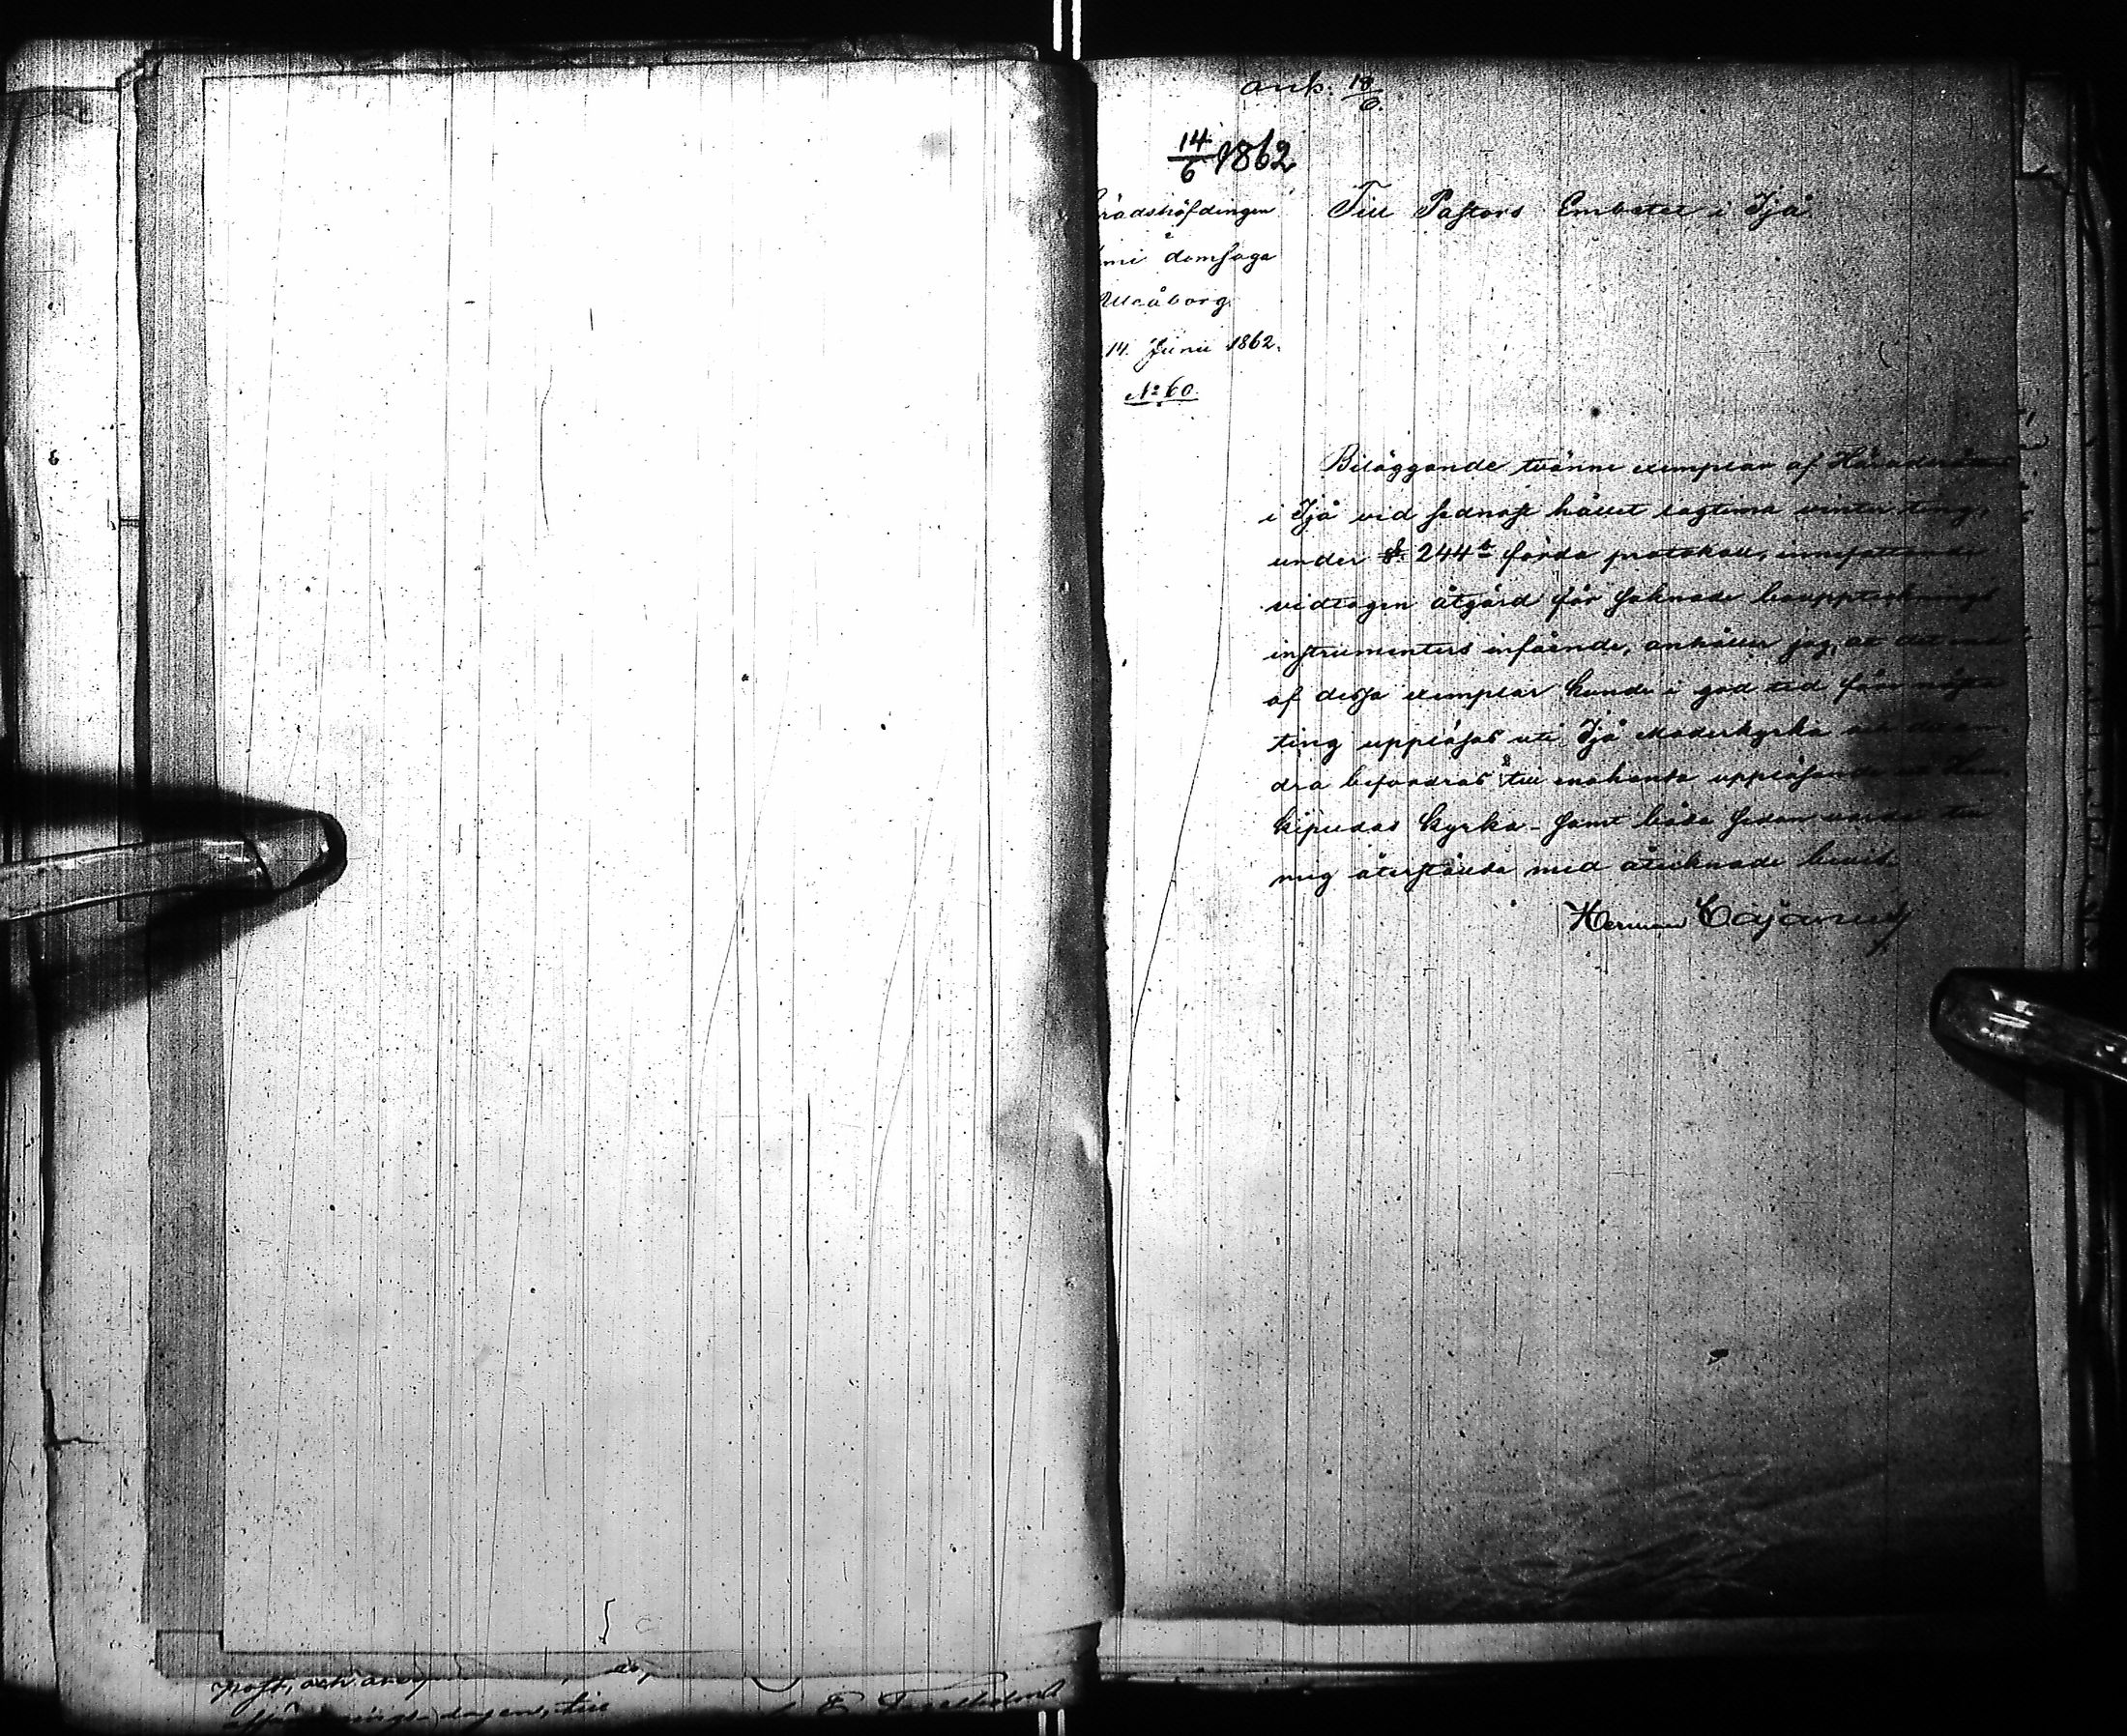 ank. 18/6.
14/6 1862
rådshöfdingen
mi domsaga
Uleåborg.
14. Junii 1862.
No 60.
Till Pastors Embetet i Ijå.
Biläggande tvänne exemplar af Häradsrättens
i Ijå vid sednast hållet lagtima vinterting,
under §. 244 förda protokoll, innefattande
vidtagen åtgärd för saknade bouppteknings
instrumenters infående, anhåller jag, at det ena
af dessa exemplar kunde i god tid före nästa
ting uppläsas uti Ijå Moderkyrka och det a
dra befordras till enahanda uppläsande
kipudas kyrka - samt båda sedan varda till
mig återstälda med åtecknade bevis.
Herman Cajanus
post, och
dagen, till
E Fagerholm